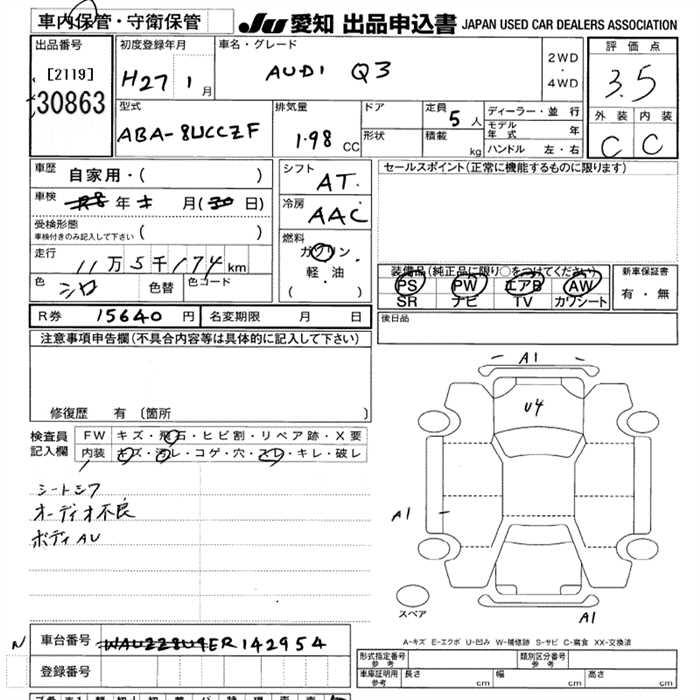 車内保管・守衛保管
JU 愛知 出品申込書 JAPAN USED CAR DEALERS ASSOCIATION
出品番号
[2119]
30863
初度登録年月
H27 1 月
車名・グレード
AUDI Q3
2WD
・
4WD
評価点
3.5
外装 内装
C C
型式
ABA-8UCCZF
排気量
1.98 CC
ドア
形状
定員 5 人
積載 kg
ディーラー・並行
モデル年式 年
ハンドル 左・右
車歴
自家用・( )
車検
年 月( 日)
受検形態
車検付きのみ記入して下さい ( )
走行
11万5千174km
色
シロ
色替
色コード
シフト
AT
冷房
AAC
燃料
ガソリン
軽・油
( )
セールスポイント(正常に機能するものに限ります)
装備品(純正品に限り○をつけてください)
PS PW エアB AW
SR ナビ TV カワシート
新車保証書
有・無
R券 15640 円
名変期限 月 日
後日品
注意事項申告欄(不具合内容等は具体的に記入して下さい)
修復歴 有 〔箇所 〕
検査員記入欄
FW キズ・飛石・ヒビ割・リペア跡・X要
内装 キズ・汚レ・コゲ・穴・スレ・キレ・破レ
シートシワ
オーディオ不良
ボディAU
A1
U4
A1
A1
スペア
A-キズ E-エクボ U-凹み W-補修跡 S-サビ C-腐食 XX-交換済
N
車台番号 WAUZZZ8U9ER142954
登録番号
形式指定番号 参考
類別区分番号 参考
車庫証明用 参考
長さ cm 幅 cm 高さ cm